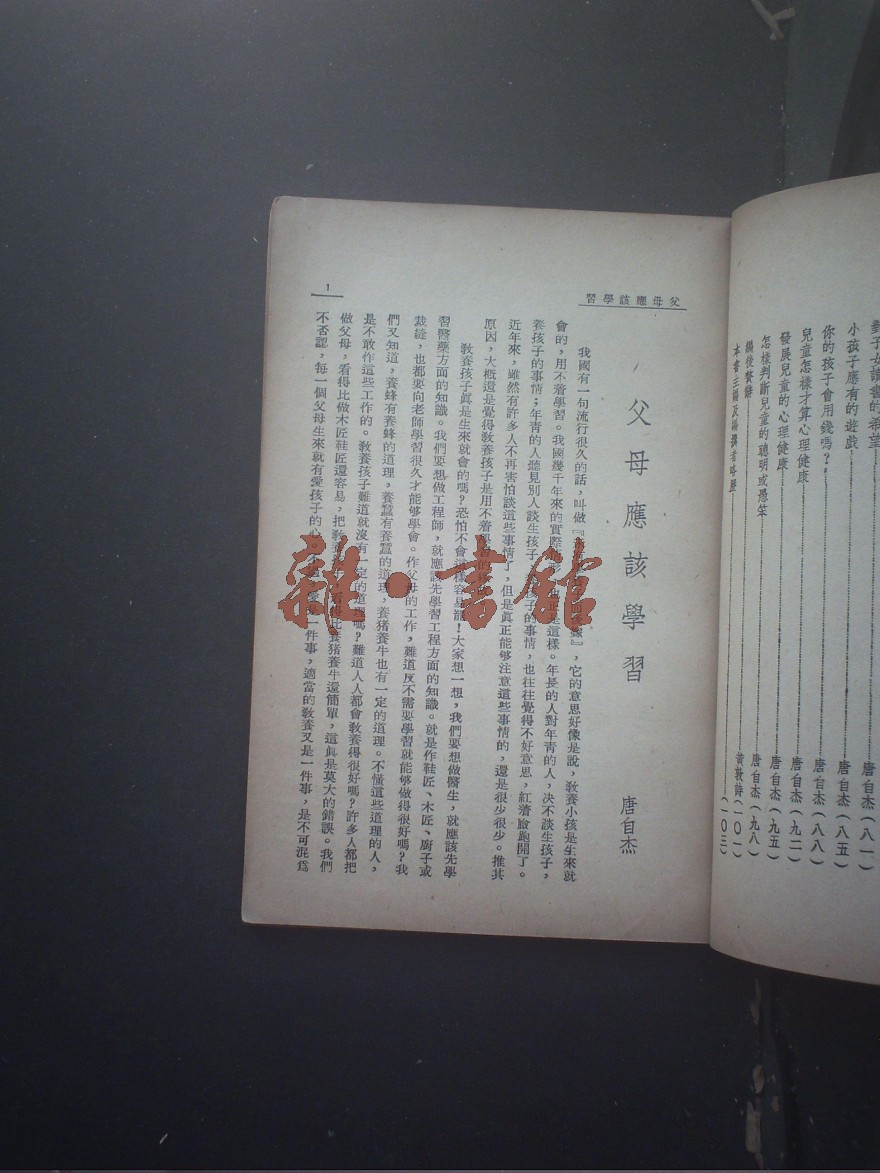 對子女讀書的希望 唐自杰(八一)
小孩子應有的遊戲 唐自杰(八五)
你的孩子會用錢嗎? 唐自杰(八八)
兒童怎樣才算心理健康 唐自杰(九二)
發展兒童的心理健康 唐自杰(九五)
怎樣判斷兒童的聰明或愚笨 唐自杰(九八)
編後贅辭 黃敦詩(一〇一)
本書主編及編撰者略歷 (一〇三)
父母應該學習
父母應該學習
唐自杰
我國有一句流行很久的話,叫做『 』,它的意思好像是說,敎養小孩是生來就
會的,用不着學習。我國幾千年來的實際情形,也正是這樣。年長的人對年靑的人,決不談生孩子,
養孩子的事情;年靑的人聽見別人談生孩子 孩子的事情,也往往覺得不好意思,紅着臉跑開了。
近年來,雖然有許多人不再害怕談這些事情了,但是眞正能够注意這些事情的,還是很少很少。推其
原因,大槪還是覺得敎養孩子是用不着學習的
敎養孩子眞是生來就會的嗎?恐怕不會這樣容易罷!大家想一想,我們要想做醫生,就應該先學
習醫藥方面的知識。我們要想做工程師,就應該先學習工程方面的知識。就是作鞋匠、木匠、廚子或
裁縫,也都要向老師學習很久才能够學會。作父母的工作,難道反不需要學習就能够做得很好嗎?我
們又知道,養蜂有養蜂的道理,養蠶有養蠶的道理,養猪養牛也有一定的道理。不懂這些道理的人,
是不敢作這些工作的。敎養孩子難道就沒有一定的道理嗎?難道人人都會敎養得很好嗎?許多人都把
做父母,看得比做木匠鞋匠還容易,把敎養孩子,看得比養猪養牛還簡單,這眞是莫大的錯誤。我們
不否認,每一個父母生來就有愛孩子的心。 一件事,適當的敎養又是一件事,是不可混爲
1
雜·書館